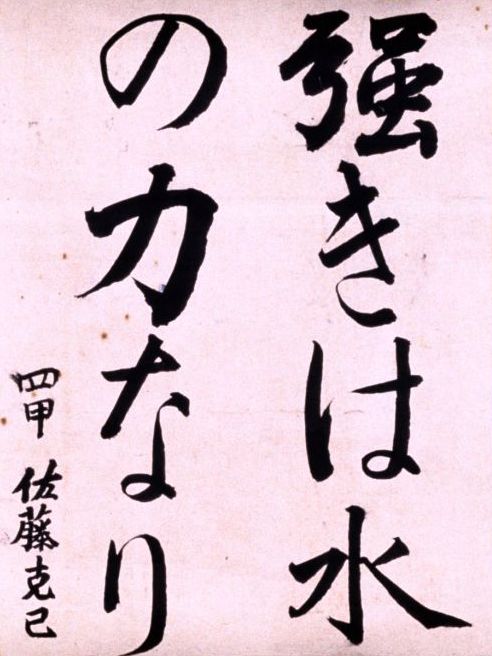 強きは水
の力なり
四甲 佐藤克己